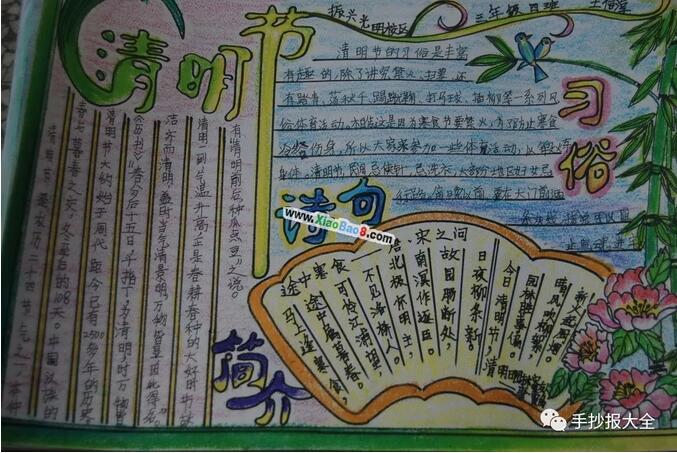 清明节
振兴光明校区 三年级四班
习俗
清明节的习俗是丰富
有趣的,除了讲究禁火、扫墓,还
有踏青、荡秋千、踢蹴鞠、打马球、插柳等一系列风
俗体育活动。相传这是因为寒食节要禁火,为了防止寒食
冷餐伤身,所以大家来参加一些体育活动,以锻炼
身体。清明节,民间忌使针,忌洗衣,大部分地区妇女忌
行路。傍晚以前,要在大门前洒
诗句
www.XiaoBao8.com
途中寒食
宋之问
马上逢寒食,
途中属暮春。
可怜江浦望,
不见洛桥人。
北极怀明主,
南溟作逐臣。
故园肠断处
日夜柳条新。
清明
今日清明节,
园林胜事偏。
晴风吹柳絮,
新火起厨烟
简介
清明节是农历二十四节气之一,在仲
春与暮春之交,冬至后的108天。中国汉族的
清明节大约始于周代,距今已有2500多年的历史
《历书》:"春分后十五日,斗指丁,为清明,时万物皆
洁齐而清明,盖时当气清景明,万物皆显,因此得名。"
清明一到,气温升高,正是春耕春种的大好时节,故
有"清明前后,种瓜点豆"之说。
手抄报大全